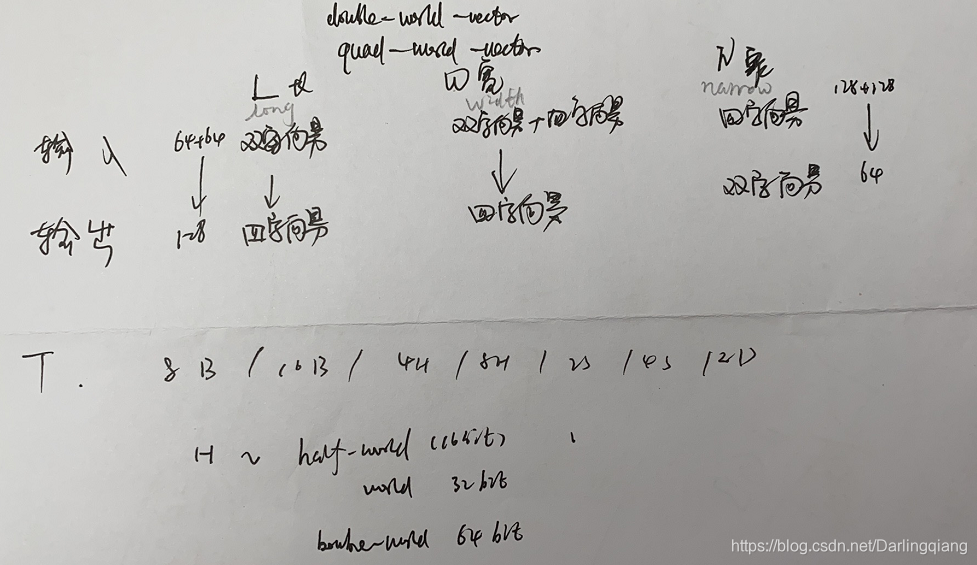 double-world-vector
quad-world-vector
L 长 W 宽 N 窄
long width narrow 128+128
输入 64+64 双字向量 双字向量+四字向量 四字向量
↓ ↓ ↓ ↓
输出 128 四字向量 四字向量 双字向量 64
T. 8B / 16B / 4H / 8H / 2S / 4S / 2D
H ~ half-world (16bit)
world 32bit
double-world 64bit
https://blog.csdn.net/Darlingqiang